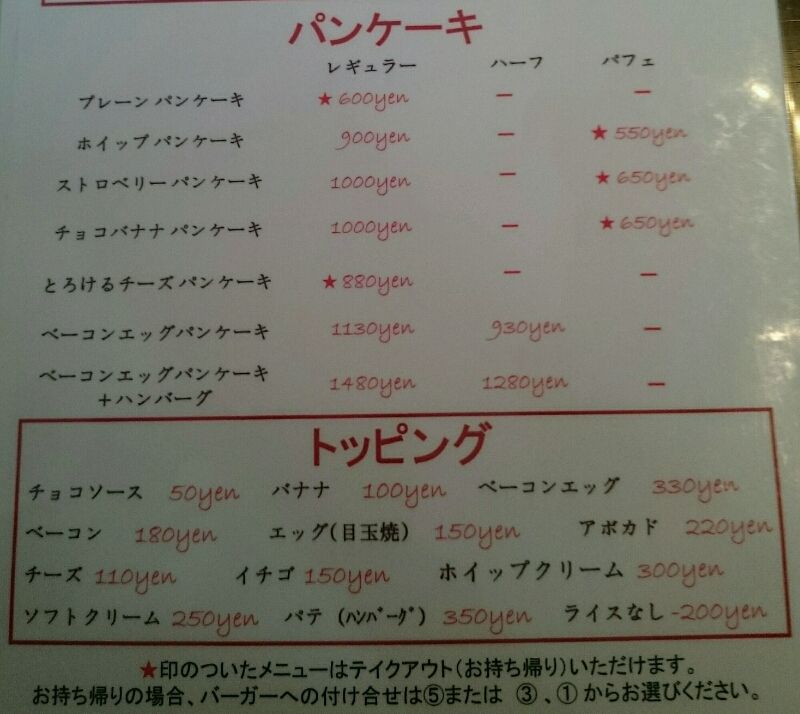 パンケーキ
レギュラー ハーフ パフェ
プレーン パンケーキ ★600yen － －
ホイップ パンケーキ 900yen － ★550yen
ストロベリー パンケーキ 1000yen － ★650yen
チョコバナナ パンケーキ 1000yen － ★650yen
とろけるチーズ パンケーキ ★880yen － －
ベーコンエッグパンケーキ 1130yen 930yen －
ベーコンエッグパンケーキ
＋ハンバーグ 1480yen 1280yen －
トッピング
チョコソース 50yen バナナ 100yen ベーコンエッグ 330yen
ベーコン 180yen エッグ(目玉焼) 150yen アボカド 220yen
チーズ 110yen イチゴ 150yen ホイップクリーム 300yen
ソフトクリーム 250yen パテ (ﾊﾝﾊﾞｰｸﾞ) 350yen ライスなし -200yen
★印のついたメニューはテイクアウト(お持ち帰り)いただけます。
お持ち帰りの場合、バーガーへの付け合せは⑤または ③、①からお選びください。